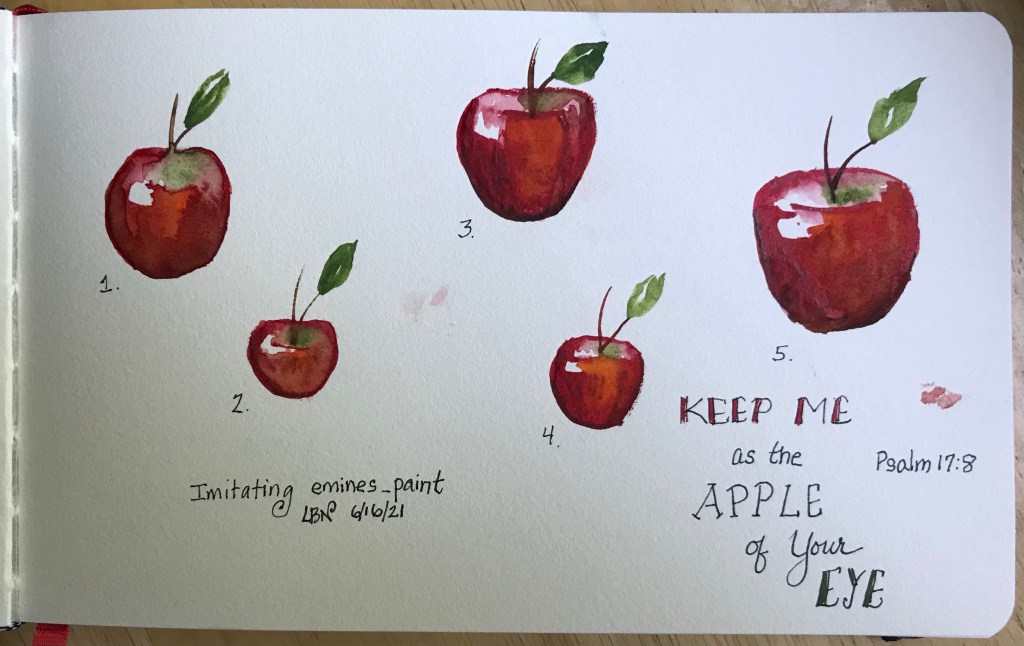 1.
2.
3.
4.
5.
KEEP ME
as the
APPLE
of Your
EYE
Psalm 17:8
Imitating emines_paint
LBN 6/16/21